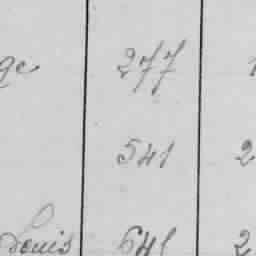 ge 277
541 2
Louis 641 2